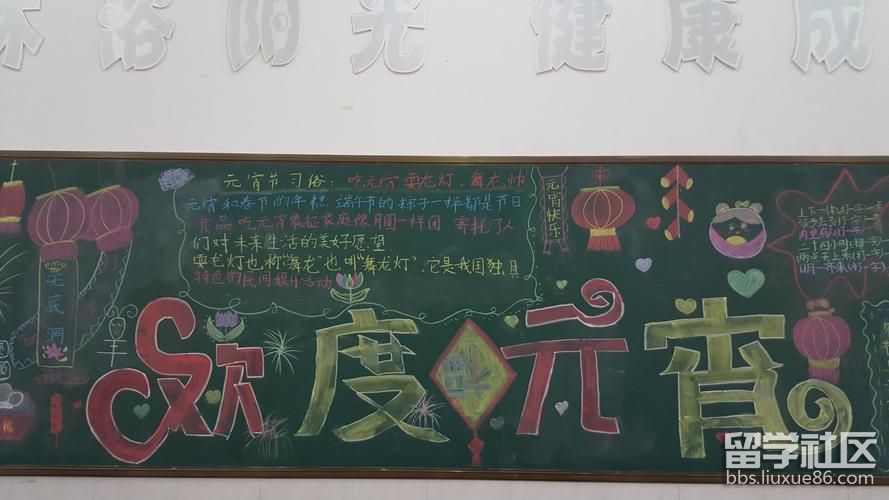 沐浴阳光 健康成
元宵节习俗：吃元宵 耍龙灯、舞龙狮
元宵和春节的年糕，端午节的粽子一样都是节日
食品。吃元宵象征家庭像月圆一样团，寄托了人
们对未来生活的美好愿望
耍龙灯也称"舞龙"也叫"舞龙灯".它是我国独具
特色的民间娱乐活动
元宵快乐
无底洞
上下一体(打一字)
二十四小时(打一字)
明一齐来(打一字)
福
欢度元宵
留学社区
bbs.liuxue86.com